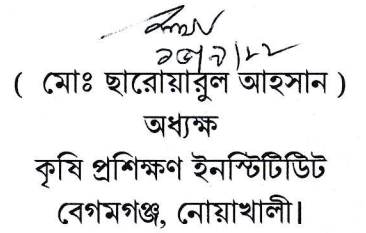 ( মোঃ ছারোয়ারুল আহসান )
অধ্যক্ষ
কৃষি প্রশিক্ষণ ইনস্টিটিউট
বেগমগঞ্জ, নোয়াখালী।